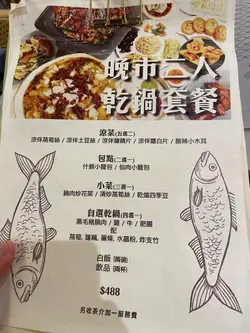 晚市二人
乾鍋套餐
涼菜(五選二)
涼伴萵筍絲 / 涼伴土豆絲 / 涼伴雞白片 / 酸辣小木耳
包點(二選一)
什錦小籠包 / 仙肉小籠包
小菜(三選一)
鵝肉炒花菜 / 清炒萵筍絲 / 乾煸四季豆
自選乾鍋(四選一)
黑毛豬腩肉 / 雞 / 牛 / 肥腸
配
萵筍, 蓮藕, 薯條, 水晶粉, 炸支竹
白飯(兩碗)
飲品(兩杯)
$488
另收茶介加一服務費